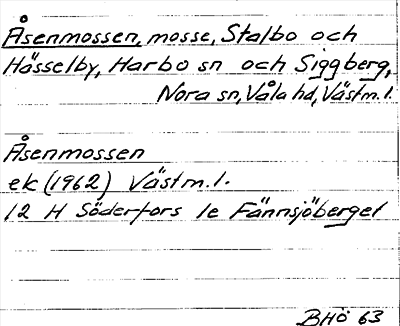 Åsenmossen, mosse, Stalbo och
Hässelby, Harbo sn och Siggberg,
Nora sn, Våla hd, Västm.l.
Åsenmossen
ek (1962) Västm.l.
12 H Söderfors 1e Fännsjöberget
BHÖ 63